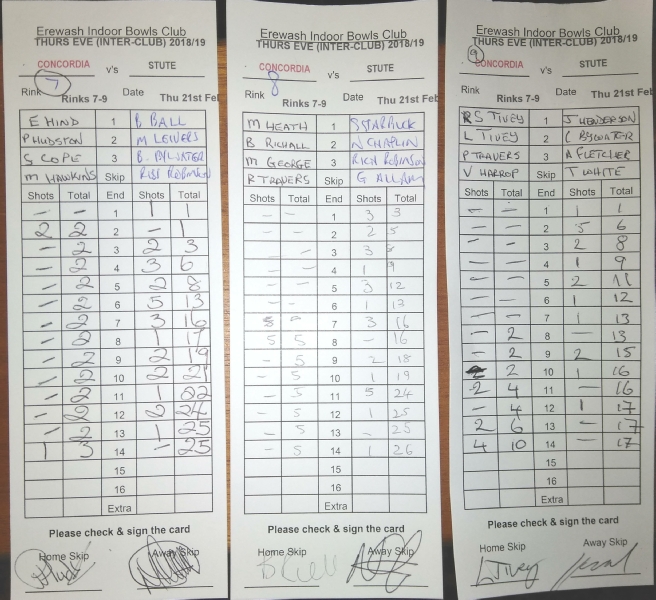 Erewash Indoor Bowls Club
THURS EVE (INTER-CLUB) 2018/19
CONCORDIA v's STUTE
7
Rink Rinks 7-9 Date Thu 21st Feb
E HIND 1 B BALL
P HUDSTON 2 M LEIVERS
G COPE 3 B. BYWATER
M HAWKINS Skip RUSS ROBINSON
Shots Total End Shots Total
- - 1 1 1
2 2 2 - 1
- 2 3 2 3
- 2 4 3 6
- 2 5 2 8
- 2 6 5 13
- 2 7 3 16
- 2 8 1 17
- 2 9 2 19
- 2 10 2 21
- 2 11 1 22
- 2 12 2 24
- 2 13 1 25
1 3 14 - 25
15
16
Extra
Please check & sign the card
Home Skip Away Skip
Erewash Indoor Bowls Club
THURS EVE (INTER-CLUB) 2018/19
CONCORDIA v's STUTE
8
Rink Rinks 7-9 Date Thu 21st Feb
M HEATH 1 S STARBUCK
B RICHALL 2 N CHAPLIN
M GEORGE 3 RICH ROBINSON
R TRAVERS Skip G ALLAM
Shots Total End Shots Total
- - 1 3 3
- - 2 2 5
- - 3 3
- - 4 1 9
- - 5 3 12
- - 6 1 13
- 7 3 16
5 5 8 - 16
- 5 9 2 18
- 5 10 1 19
- 5 11 5 24
- 5 12 1 25
- 5 13 - 25
- 5 14 1 26
15
16
Extra
Please check & sign the card
Home Skip Away Skip
Erewash Indoor Bowls Club
THURS EVE (INTER-CLUB) 2018/19
9
CONCORDIA v's STUTE
Rink Rinks 7-9 Date Thu 21st Feb
R S TIVEY 1 J HENDERSON
L TIVEY 2 C BYWATER
P TRAVERS 3 A FLETCHER
V HARROP Skip T WHITE
Shots Total End Shots Total
- - 1 1 1
- - 2 5 6
- - 3 2 8
- - 4 1 9
- - 5 2 11
- - 6 1 12
- - 7 1 13
- 2 8 - 13
- 2 9 2 15
2 10 1 16
2 4 11 - 16
- 4 12 1 17
2 6 13 - 17
4 10 14 - 17
15
16
Extra
Please check & sign the card
Home Skip Away Skip
L Tivey